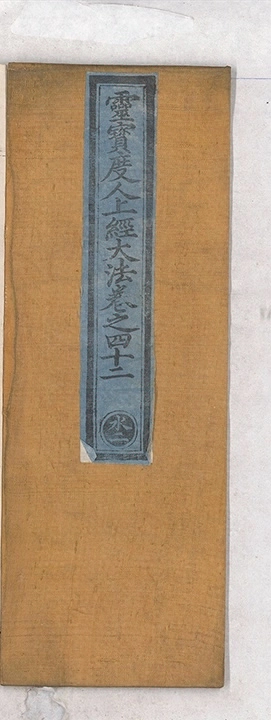 靈寶度人上經大法卷之四十二
水二